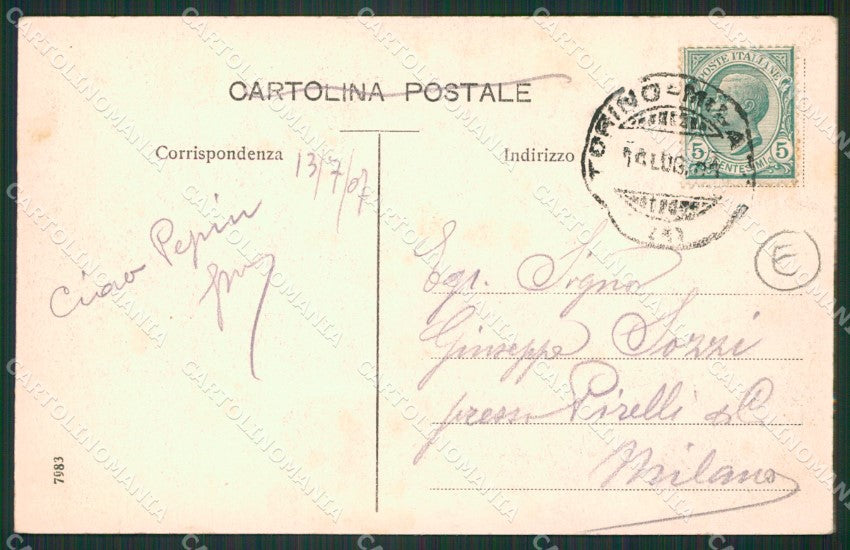 CARTOLINA POSTALE
Corrispondenza
13/7/07
Indirizzo
POSTE ITALIANE
5 CENTESIMI 5
TORINO-MILA
14 LUG.
(5)
E
Ciao Pepin
Egr. Signor
Giuseppe Sozzi
presso Pirelli & C
Milano
7983
CARTOLINOMANIA